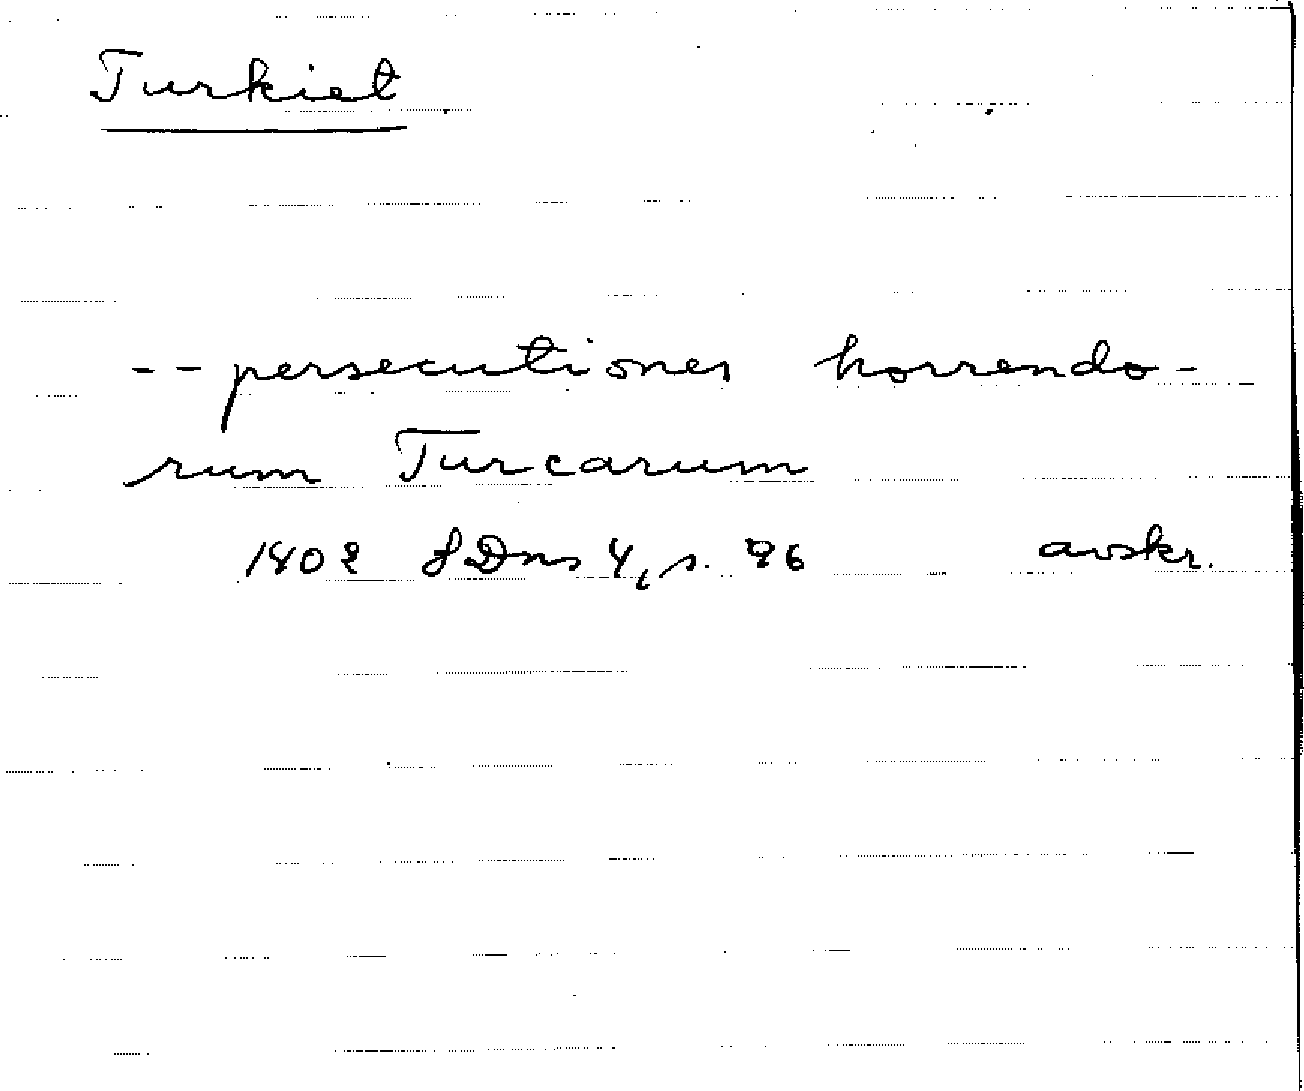 Turkiet
-- persecutiones horrendo-
rum Turcarum
1402 SDns 4, s. 96 avskr.